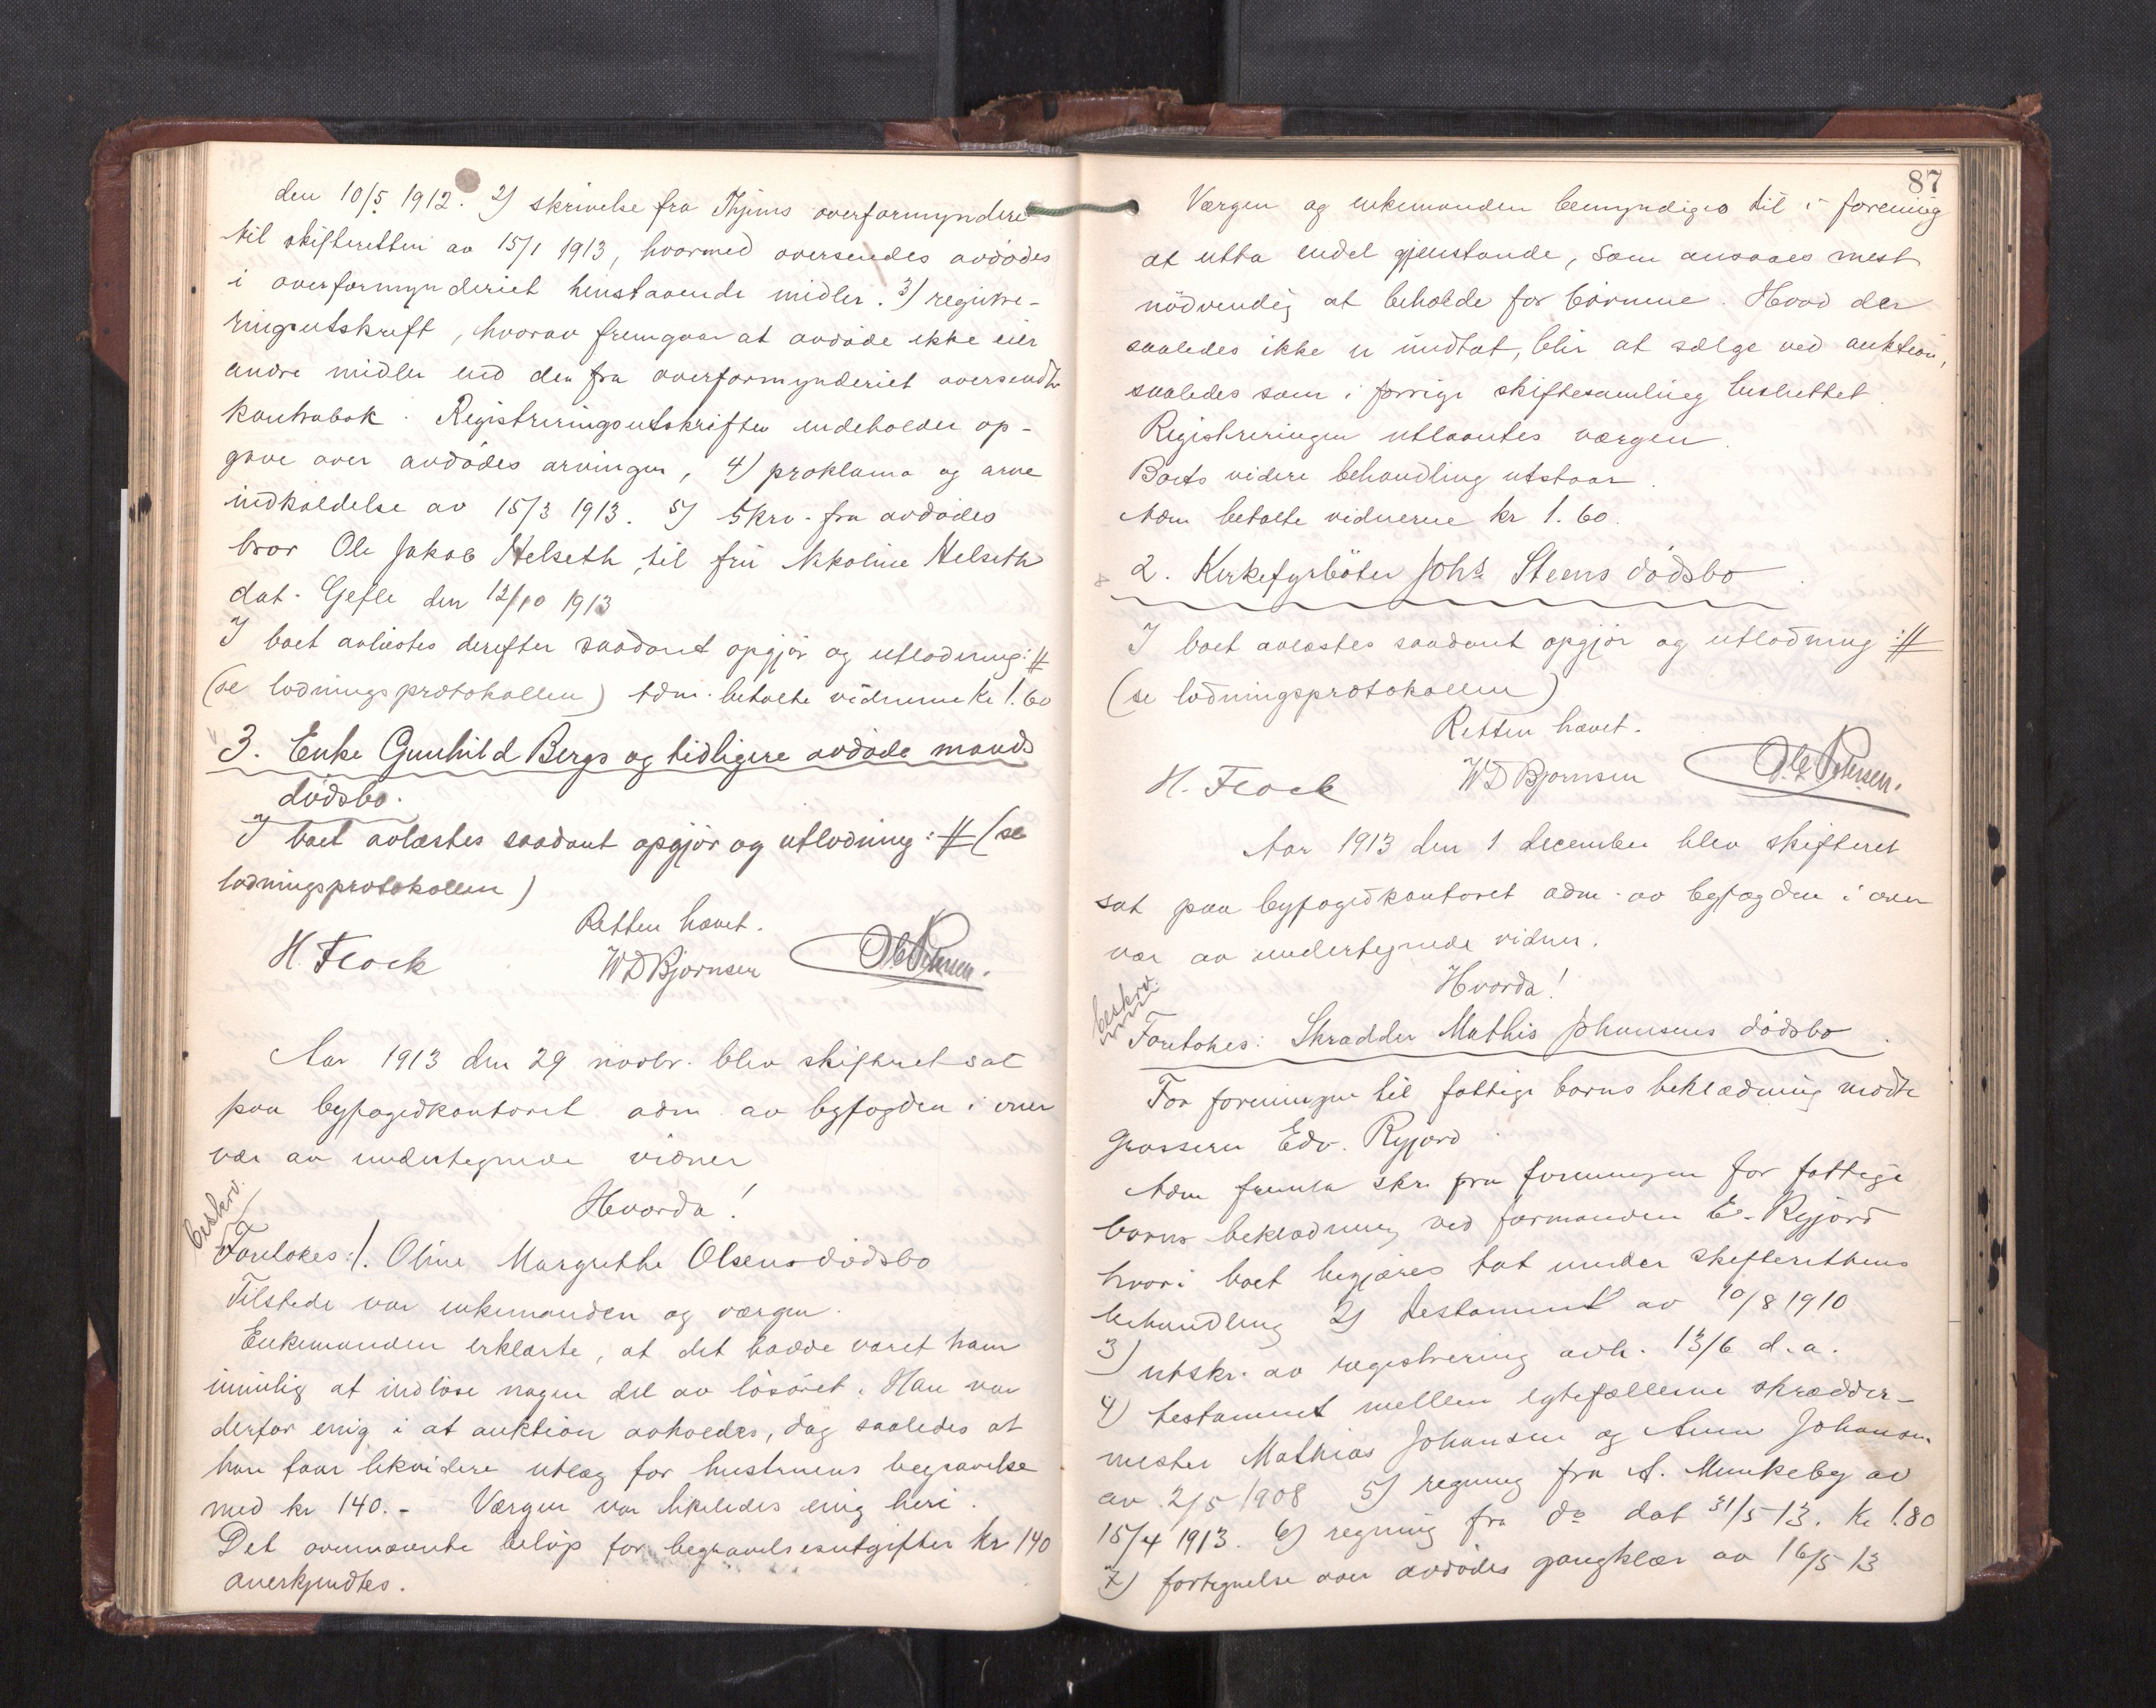 den 10/5 1912. 2) skrivelse fra overformynderi
til skifteretten av 15/1 1913, hvormed oversendes avdødes
i overformynderiet henstaaende midler. 3) registre-
ringsutskrift, hvorav fremgaar at avdøde ikke eier
andre midler end den fra overformynderiet oversendte
kontrabok. Registreringsutskriften indeholder op-
gave over avdødes arvinger, 4) proklama og arve
indkaldelse av 15/3 1913. 5) Skrv. fra avdødes
bror Ole Jakob Helseth til fru Nikoline Helseth
dat. Gefle den 12/10 1913
I boet avlæstes derefter saadant opgjør og utlodning :#
(se lodningsprotokollen) Adm. betalte vidnerne Kr 1.60
3. Enke Gunhild Bergs og tidligere avdøde mands
dødsbo.
I boet avlæstes saadant opgjør og utlodning :# (se
lodningsprotokollen)
Retten hævet.
H. Flock WD Bjørnsen Ole Petersen.
Aar 1913 den 29 novbr. blev skifteret sat
paa byfogedkontoret adm. av byfogden i over
vær av undertegnede vidner
Hvorda!
beskrv.
Foretokes: 1. Oline Margrethe Olsens dødsbo
Tilstede var enkemanden og værgen.
Enkemanden erklærte, at det hadde været ham
umulig at indløse nogen del av løsøret. Han var
derfor enig i at auktion avholdes, dog saaledes at
han faar likvidere utlæg for hustruens begravelse
med kr 140.- Værgen var likeledes enig heri.
Det ovennævnte beløp for begravelsesutgifter kr 140
anerkjendtes.
87
Værgen og enkemanden bemyndiges til i forening
at utta endel gjenstande, som ansaaes mest
nødvendig at beholde for børnene. Hvad der
saaledes ikke er undtat, blir at sælge ved auktion,
saaledes som i forrige skiftesamling besluttet.
Registreringen utlaantes værgen.
Boets videre behandling utstaar.
Adm betalte vidnerne kr 1.60.
2. Kirkefyrbøter Johs Steens dødsbo
I boet avlæstes saadant opgjør og utlodning :#
(se lodningsprotokollen)
Retten hævet.
H. Flock WD Bjørnsen Ole Petersen.
Aar 1913 den 1 december blev skifteret
sat paa byfogedkontoret adm. av byfogden i over
vær av undertegnede vidner.
Hvorda!
beskrv.
Foretokes: Skrædder Mathis Johansens dødsbo.
For foreningen til fattige barns beklædning mødte
grosserer Edv. Ryjord.
Adm fremla skr. fra foreningen for fattige
barns beklædning ved formanden E. Ryjord
hvori boet begjæres tat under skifterettens
behandling 2) testament av 10/8 1910
3) utskr. av registrering avh. 13/6 d.a.
4) testament mellem egtefællerne skrædder-
mester Mathias Johansen og Anna Johansen
av 2/5 1908 5) regning fra A. Munkeby av
15/4 1913. 6) regning fra do dat 31/5 13. Kr 1.80
7) fortegnelse over avdødes gangklær av 16/5 13